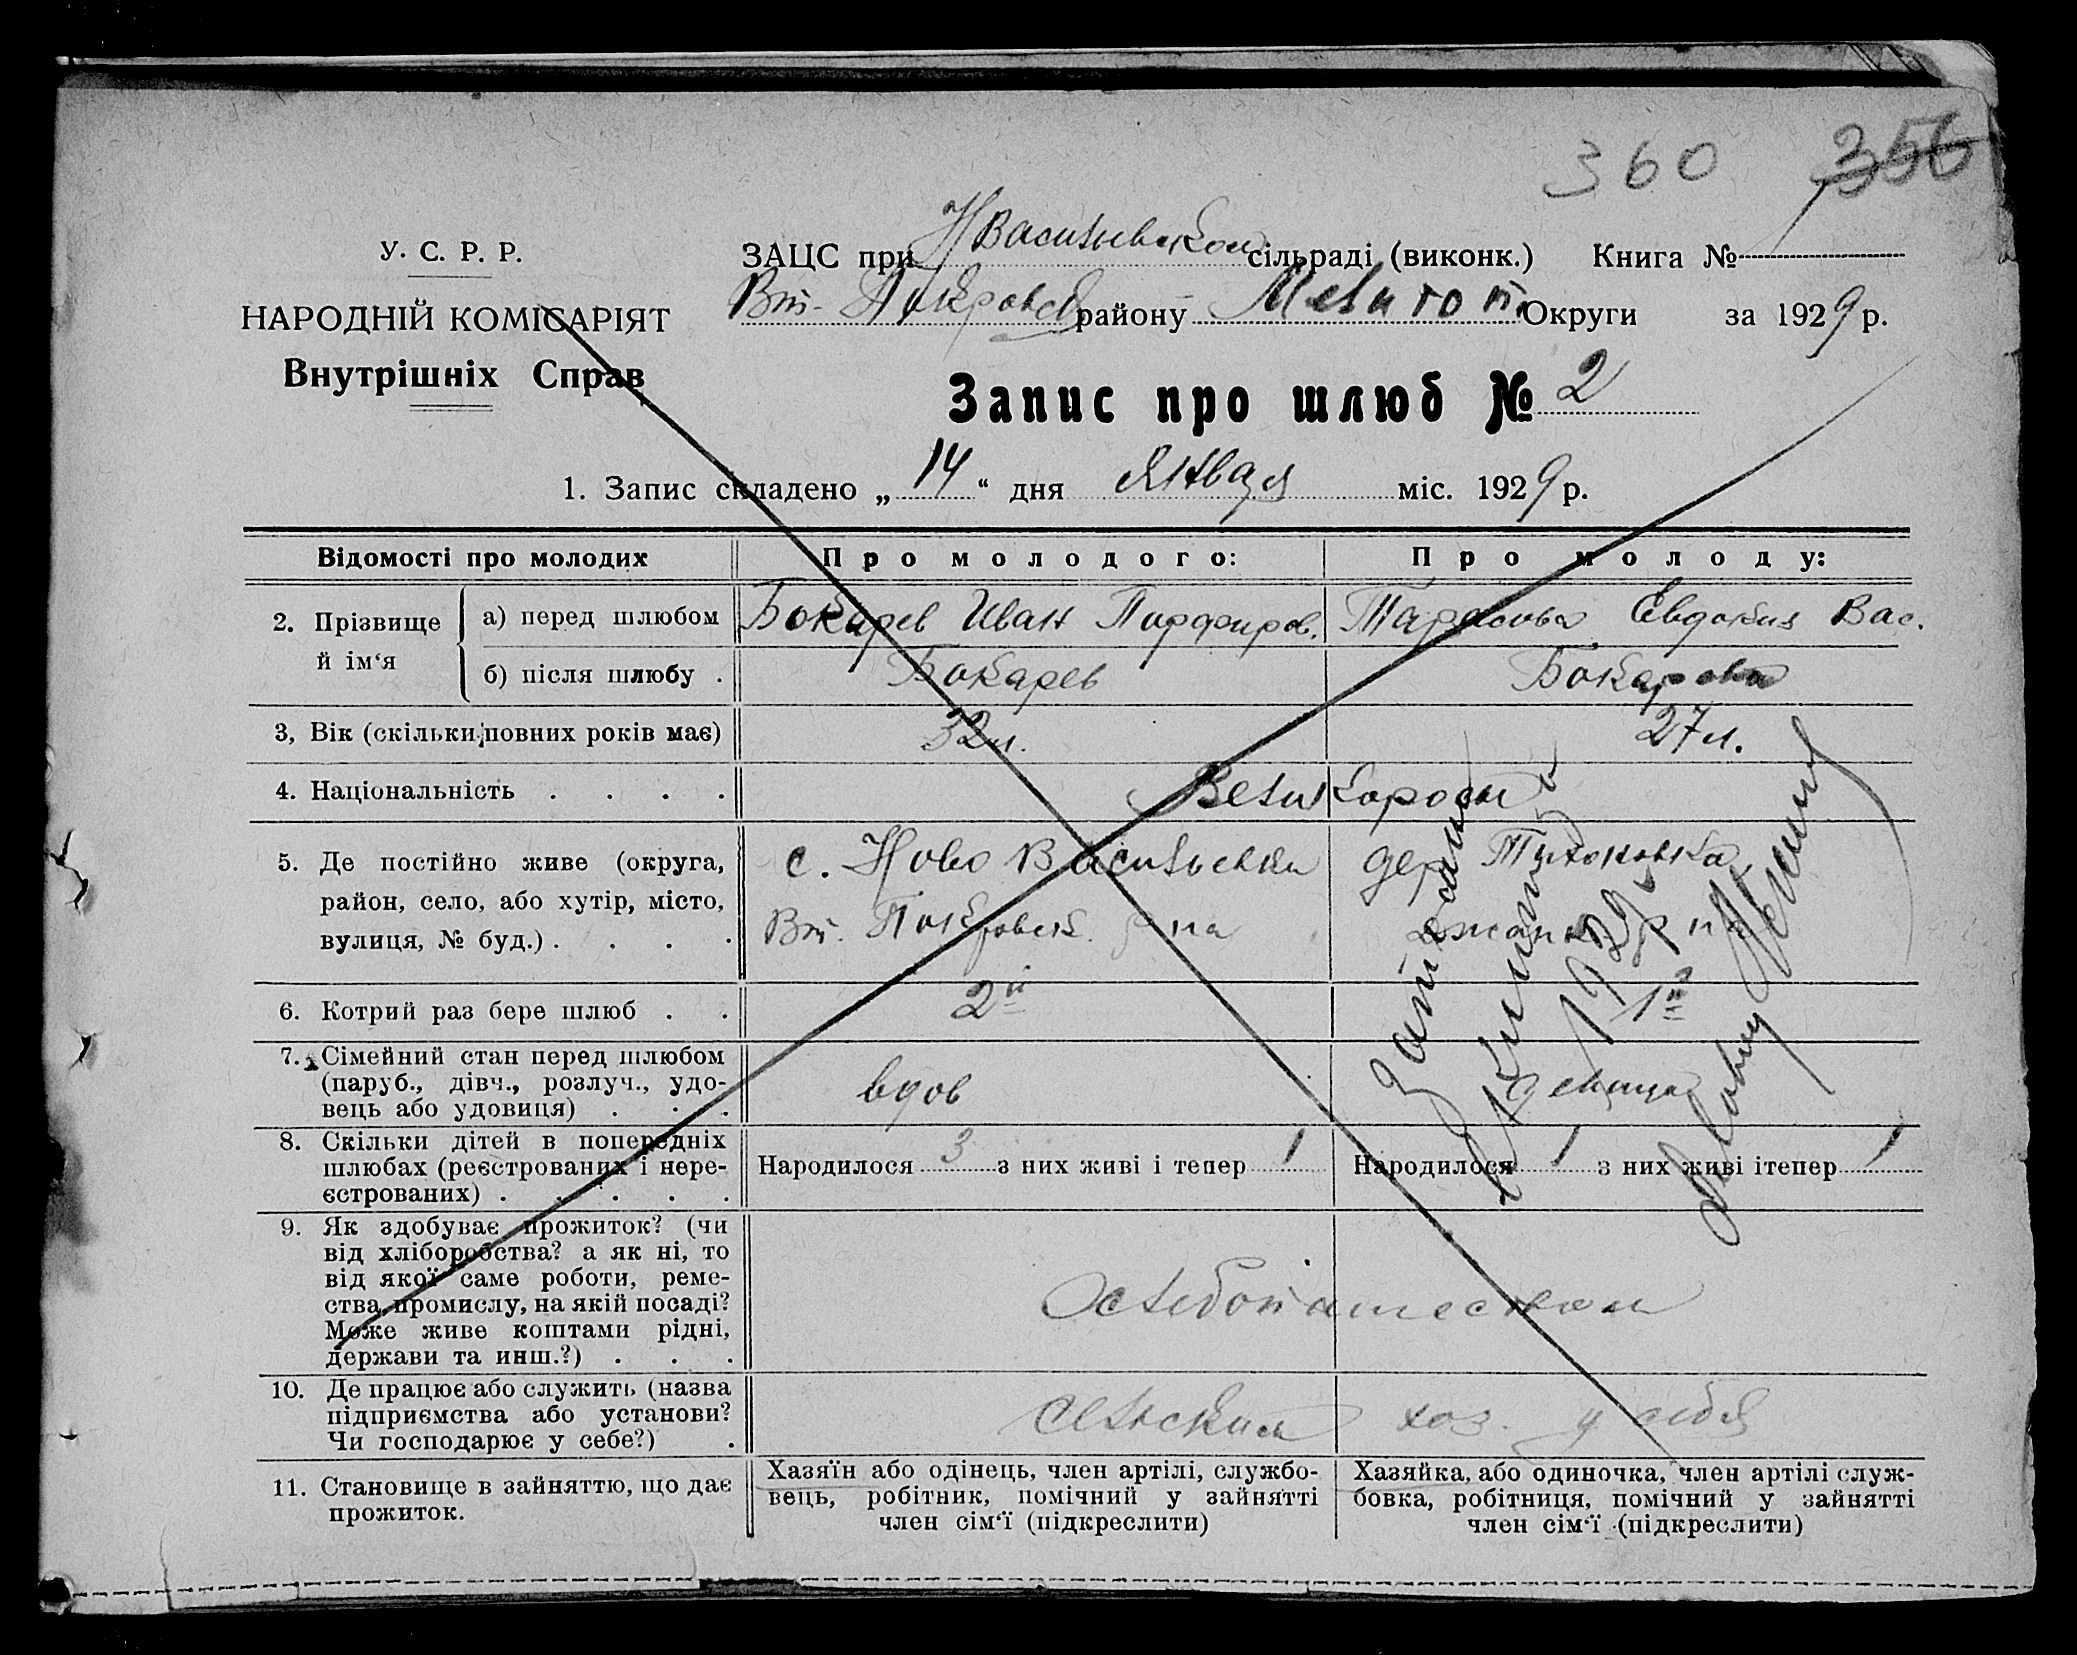 360 356
У. С. Р. Р.
НАРОДНІЙ КОМІСАРІЯТ
Внутрішніх Справ
ЗАЦС при НВасильевском сільраді (виконк.) Книга №
Вт-Покровск району Мелитоп Округи за 1929 р.
Запис про шлюб № 2
1. Запис складено „ 14 “ дня Января міс. 1929 р.
Відомості про молодих
Про молодого:
Про молоду:
2. Прізвище й ім‘я
а) перед шлюбом
Бокарев Иван Порфиров.
Тарасова Евдокия Вас.
б) після шлюбу .
Бокарев
Бокарева
3, Вік (скільки повних років має)
32 л.
27 л.
4. Національність . . . .
Великоросы
5. Де постійно живе (округа,
район, село, або хутір, місто,
вулиця, № буд.) . . . .
с. Ново Васильевки
Вт. Покровск. р на
дер Тихоновка
р на
6. Котрий раз бере шлюб . .
2й
1й
7. Сімейний стан перед шлюбом
(паруб., дівч., розлуч., удо-
вець або удовиця) . . .
вдов
девица
8. Скільки дітей в попередніх
шлюбах (реєстрованих і нере-
єстрованих) . . . . .
Народилося 3 з них живі і тепер 1
Народилося 1 з них живі ітепер 1
9. Як здобуває прожиток? (чи
від хліборобства? а як ні, то
від якої саме роботи, реме-
ства, промислу, на якій посаді?
Може живе коштами рідні,
держави та инш.?) . . .
хлебопашеством
10. Де працює або служить (назва
підприємства або установи?
Чи господарює у себе?) .
сельским хоз. у себя
11. Становище в зайняттю, що дає
прожиток.
Хазяїн або одінець, член артілі, службо-
вець, робітник, помічний у зайнятті
член сім‘ї (підкреслити)
Хазяйка, або одиночка, член артілі служ-
бовка, робітниця, помічний у зайнятті
член сім‘ї (підкреслити)